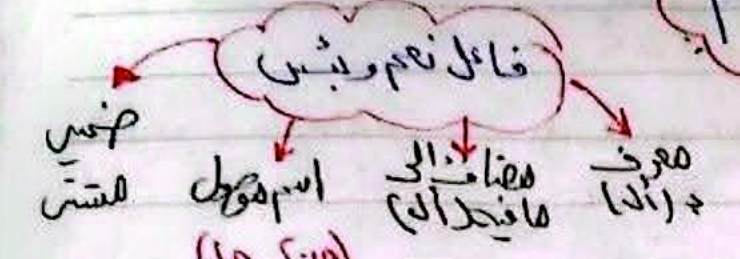 فاعل نعم وبئس
معرف
بـ (أل)
مضاف إلى
ما فيه (أل)
اسم موصول
(من، ما)
ضمير
مستتر